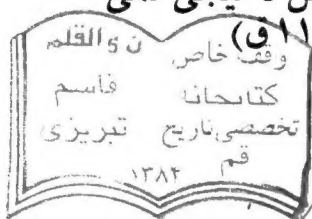 ۱۱ق)
ن و القلم
وقف خاص
کتابخانه قاسم
تخصصی تاریخ تبریزی
قم
۱۳۸۴